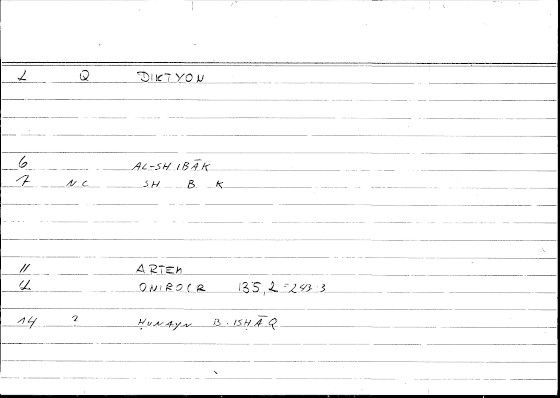 1 Q DIKTYON
6 AL-SHIBĀK
7 NC SH B K
11 ARTEM
12 ONIROCR 135,2 = 243 3
14 ? ḤUNAYN B. ISḤĀQ